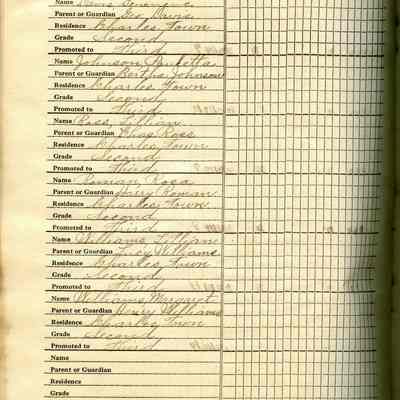 Name Davis Genevieve
Parent or Guardian Geo Davis
Residence Charles Town
Grade Second
Promoted to Third
Name Johnson Pauletta
Parent or Guardian Bertha Johnson
Residence Charles Town
Grade Second
Promoted to Third
Name Ross, Lillian
Parent or Guardian Chas Ross
Residence Charles Town
Grade Second
Promoted to Third
Name Roman Rosa
Parent or Guardian Henry Roman
Residence Charles Town
Grade Second
Promoted to Third
Name Williams, Lillian
Parent or Guardian Lucy Williams
Residence Charles Town
Grade Second
Promoted to Third
Name Williams, Margaret
Parent or Guardian Henry Williams
Residence Charles Town
Grade Second
Promoted to Third
Name
Parent or Guardian
Residence
Grade